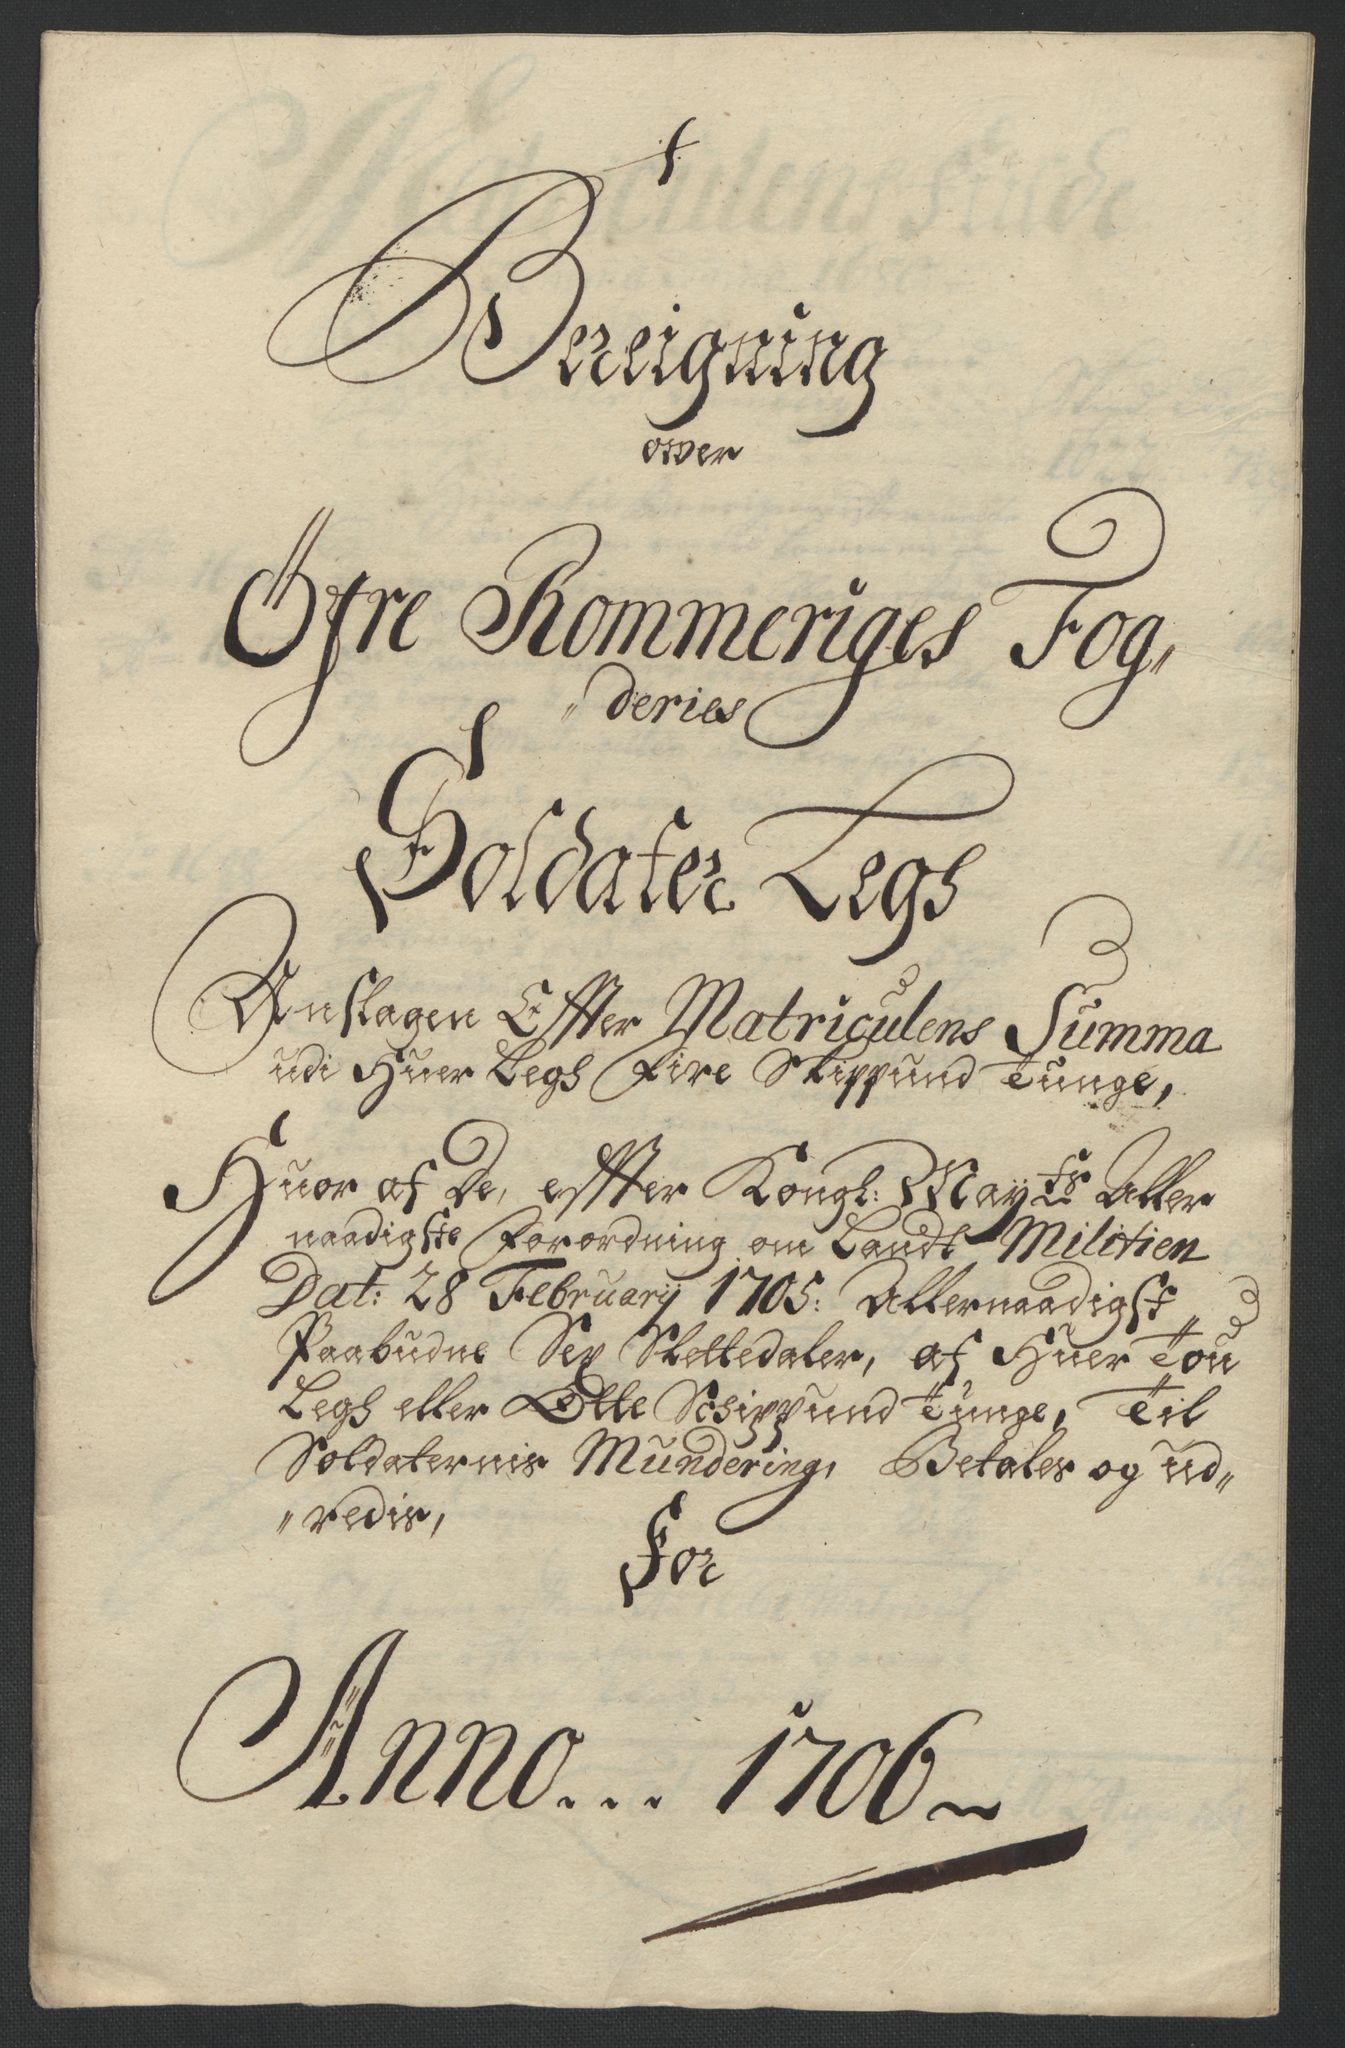 Bereigning
over
Öfre Rommeriges Fog„
„deries
Soldater Legs
Anslagen Effter Matriculens Summa
udi Huer Legs Fire Skippund Tunge,
Huor af De, effter Kongl: Mayts Aller
naadigste Forordning om Landt Militien
Dat: 28 Februarij 1705. Allernaadigst
Paabudne Sex Slettedaler, af Huer Tou
Legs eller Otte Schippund Tunge, Til
Soldaternis Mundering, Betales og ud„
„redis,
For
Anno... 1706